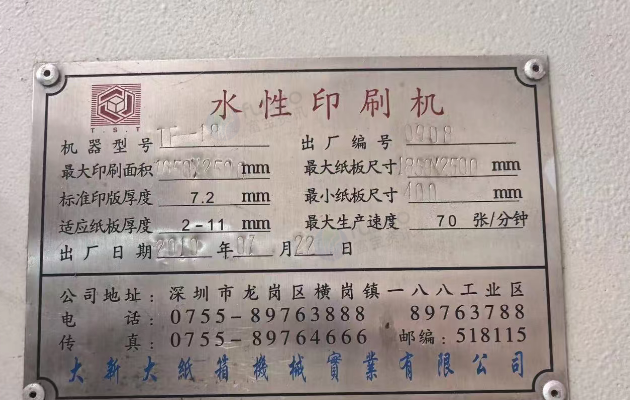 水性印刷机
T.S.T
机器型号 出厂编号 0908
最大印刷面积 mm 最大纸板尺寸 mm
标准印版厚度 7.2 mm 最小纸板尺寸 400 mm
适应纸板厚度 2-11 mm 最大生产速度 70 张/分钟
出厂日期 年 月 22 日
公司地址：深圳市龙岗区横岗镇一八八工业区
电 话：0755-89763888 89763788
传 真：0755-89764666 邮编：518115
大新大纸箱機械實業有限公司